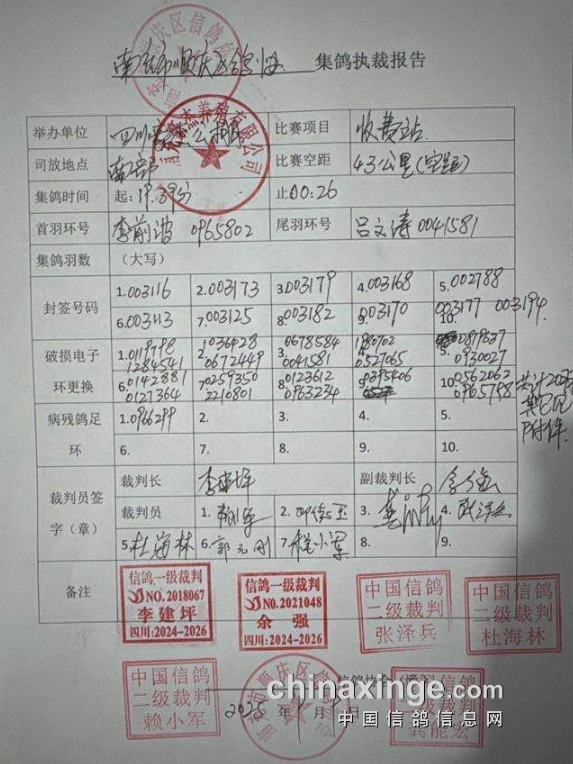 南充市顺庆区信鸽协 集鸽执裁报告
举办单位 四川 比赛项目 收费站
司放地点 南部 比赛空距 43公里(空距)
集鸽时间 起: 19.39分 止00:26
首羽环号 李前波 0965802 尾羽环号 吕文涛 0041581
集鸽羽数 (大写)
封签号码 1.003116 2.003173 3.003179 4.003168 5.002788
6.003113 7.003125 8.003182 9.003170 10. 003177 003194
破损电子 1.0119798 2.1036428 3.0678584 4. 5.0819637
1284541 0672449 0041581 0327065 0930027
环更换 6.0142881 7.0259350 8.0123612 9.0395406 10.0562062
0127364 2210801 0963234 0965758 共计20
附件
病残鸽足 1.0966299 2. 3. 4. 5.
环 6. 7. 8. 9. 10.
裁判长 李建坪 副裁判长 余强
裁判员签 裁判员 1. 2. 3. 4.
字(章) 5.杜海林 6.郭元刚 7.程小军 8. 9.
备注
信鸽一级裁判
NO.2018067
李建坪
四川:2024-2026
信鸽一级裁判
NO.2021048
余强
四川:2024-2026
中国信鸽
二级裁判
张泽兵
中国信鸽
二级裁判
杜海林
中国信鸽
二级裁判
赖小军
信鸽协会
2025年1月
龚能宏
chinaxinge.com
中国信鸽信息网